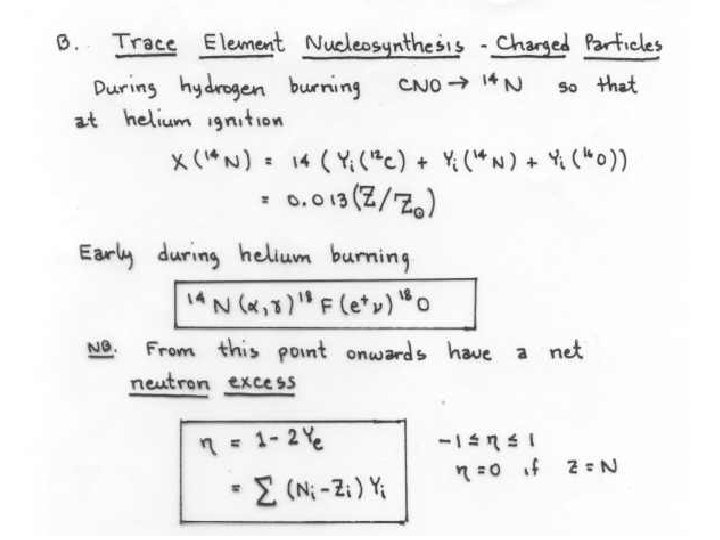 B. Trace Element Nucleosynthesis - Charged Particles
During hydrogen burning CNO → ¹⁴N so that
at helium ignition
X(¹⁴N) = 14 (Yᵢ(¹²C) + Yᵢ(¹⁴N) + Yᵢ(¹⁶O))
= 0.013 (Z/Z⊙)
Early during helium burning
¹⁴N(α,γ)¹⁸F(e⁺ν)¹⁸O
NB. From this point onwards have a net
neutron excess
η = 1 - 2Yₑ -1 ≤ η ≤ 1
= Σ (Nᵢ - Zᵢ) Yᵢ η = 0 if Z = N